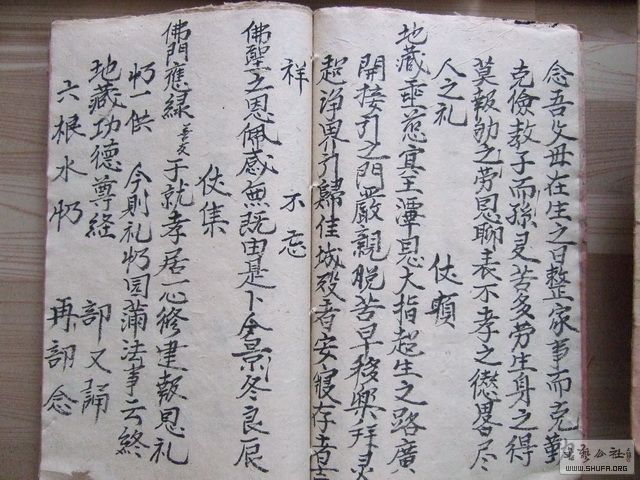 念吾父母在生之日整家事而克勤
克儉教子而孫受苦多勞生身之得
莫報劬之勞恩聊表不孝之愆畧尽
人之礼 仗願
地蔵垂慈冥主潭恩大指超生之路廣
開接引之門嚴親脱苦早获樂拜灵
超浄界引歸佳城殁者安寝存者
祥 不忘
佛聖之恩佩感無既由是卜今景冬良辰
仗集
佛門應緑 于就孝居一心修建報恩礼
忏一供 今則礼忏园蒲法事云終
地藏功德尊経 部又誦
六根水忏 再部念
WWW.SHUFA.ORG